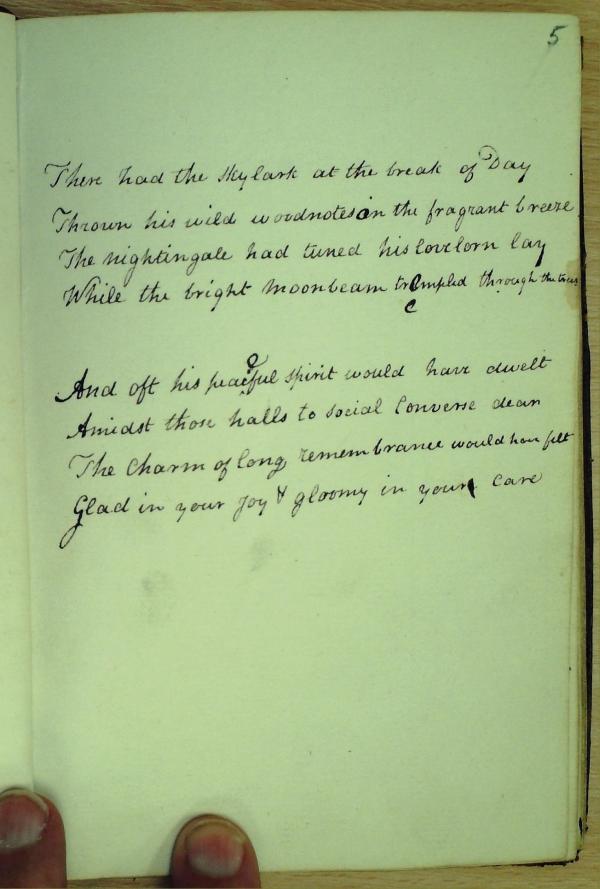 5
There had the skylark at the break of Day
Thrown his wild woodnotes on the fragrant breeze
The nightingale had tuned his lovelorn lay
While the bright Moonbeam trempled through the trees
And oft his peaceful spirit would have dwelt
Amidst those halls to social Converse dear
The Charm of long remembrance would have felt
Glad in your joy & gloomy in your care